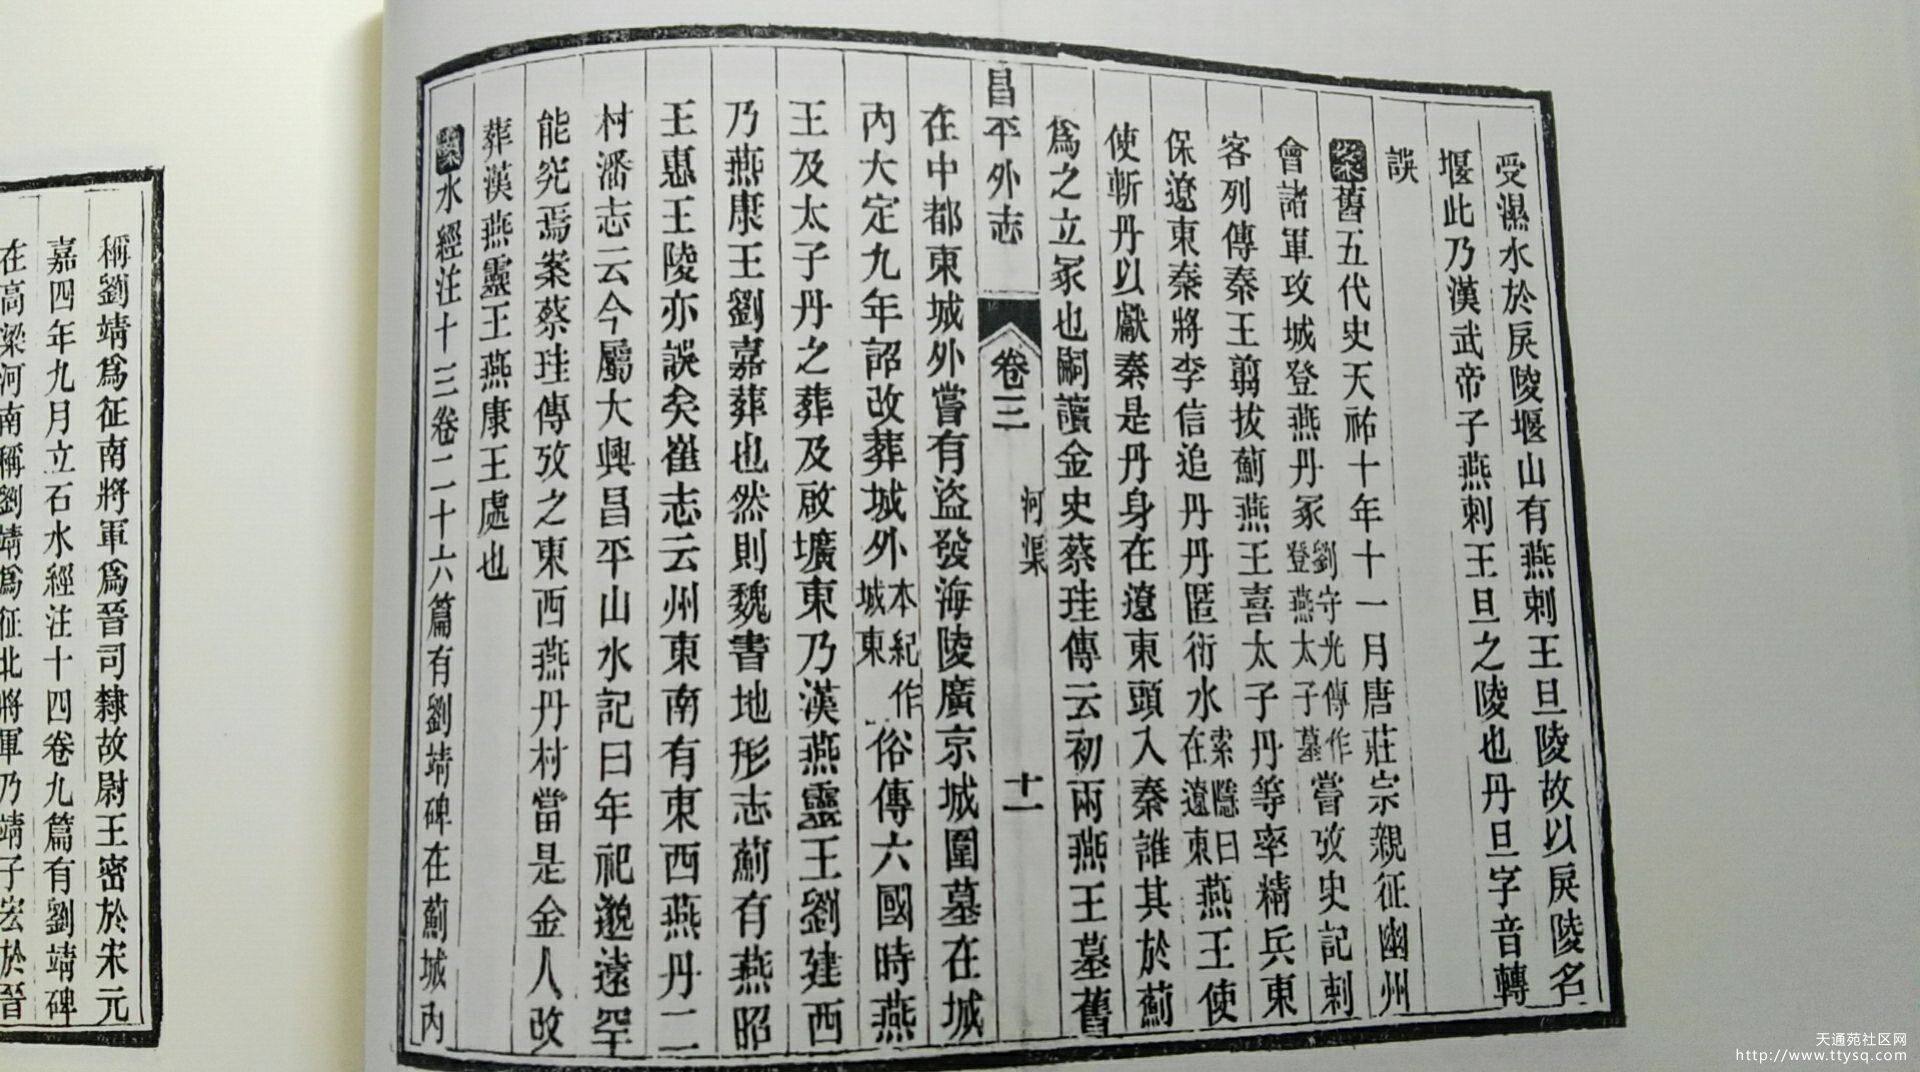 受濕水於戾陵堰山有燕剌王旦陵故以戾陵名
堰此乃漢武帝子燕剌王旦之陵也丹旦字音轉
誤
案舊五代史天祐十年十一月唐莊宗親征幽州
會諸軍攻城登燕丹冢劉守光傳作登燕太子墓嘗攷史記刺
客列傳秦王翦拔薊燕王喜太子丹等率精兵東
保遼東秦將李信追丹丹匿衍水索隱曰在遼東燕王使
使斬丹以獻秦是丹身在遼東頭入秦誰其於薊
爲之立冢也嗣讀金史蔡珪傳云初兩燕王墓舊
昌平外志
卷三
河渠
十一
在中都東城外嘗有盜發海陵廣京城圍墓在城
內大定九年詔改葬城外本紀作城東俗傳六國時燕
王及太子丹之葬及啟壙東乃漢燕靈王劉建西
乃燕康王劉嘉葬也然則魏書地形志薊有燕昭
王惠王陵亦誤矣崔志云州東南有東西燕丹二
村潘志云今屬大興昌平山水記曰年祀邈遠罕
能究焉案蔡珪傳攷之東西燕丹村當是金人改
葬漢燕靈王燕康王處也
案水經注十三卷二十六篇有劉靖碑在薊城內
稱劉靖爲征南將軍爲晉司隸故尉王密於宋元
嘉四年九月立石水經注十四卷九篇有劉靖碑
在高梁河南稱劉靖爲征北將軍乃靖子宏於晉
天通苑社区网
http://www.ttysq.com